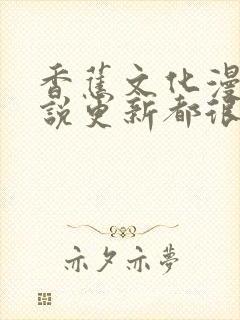 香蕉文化漫
說更新都很
亦夕亦夢